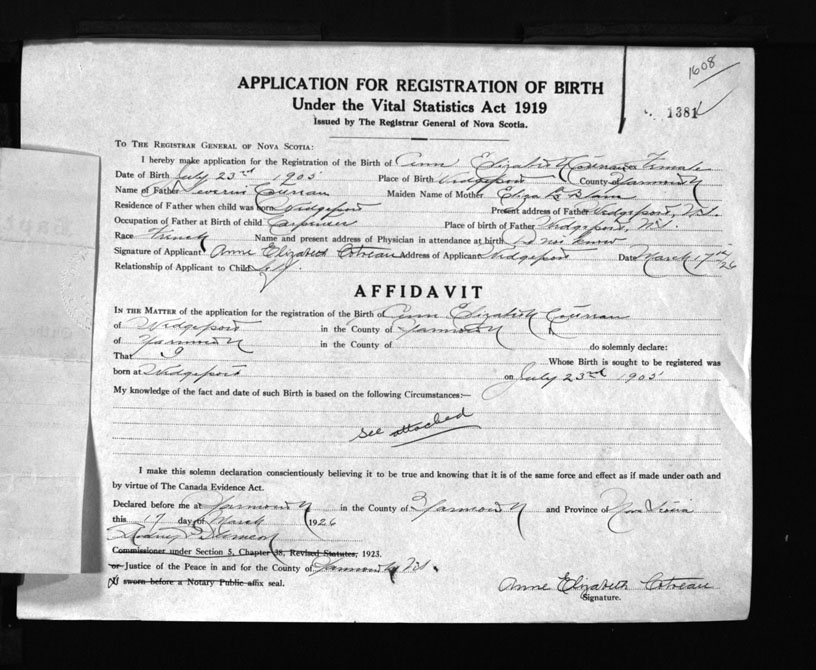 1608
1381
APPLICATION FOR REGISTRATION OF BIRTH
Under the Vital Statistics Act 1919
Issued by The Registrar General of Nova Scotia.
TO THE REGISTRAR GENERAL OF NOVA SCOTIA:
I hereby make application for the Registration of the Birth of Ann Elizabeth Female
Date of Birth July 23rd 1905 Place of Birth Wedgeport County of Yarmouth
Name of Father Maiden Name of Mother Eliza
Residence of Father when child was born Wedgeport Present address of Father Wedgeport, N.S.
Occupation of Father at Birth of child Carpenter Place of birth of Father Wedgeport, N.S.
Race French Name and present address of Physician in attendance at birth Do not know
Signature of Applicant Anne Elizabeth Cotreau Address of Applicant Wedgeport Date March 17th/26
Relationship of Applicant to Child Self
AFFIDAVIT
IN THE MATTER of the application for the registration of the Birth of Ann Elizabeth
of Wedgeport in the County of Yarmouth
of Yarmouth in the County of do solemnly declare:
That I Whose Birth is sought to be registered was
born at Wedgeport on July 23rd 1905
My knowledge of the fact and date of such Birth is based on the following Circumstances:—
see attached
I make this solemn declaration conscientiously believing it to be true and knowing that it is of the same force and effect as if made under oath and
by virtue of The Canada Evidence Act.
Declared before me at Yarmouth in the County of Yarmouth and Province of Nova Scotia
this 17 day of March 1926
Commissioner under Section 5, Chapter 38, Revised Statutes, 1923.
or Justice of the Peace in and for the County of Yarmouth N.S.
sworn before a Notary Public affix seal.
Anne Elizabeth Cotreau
Signature.